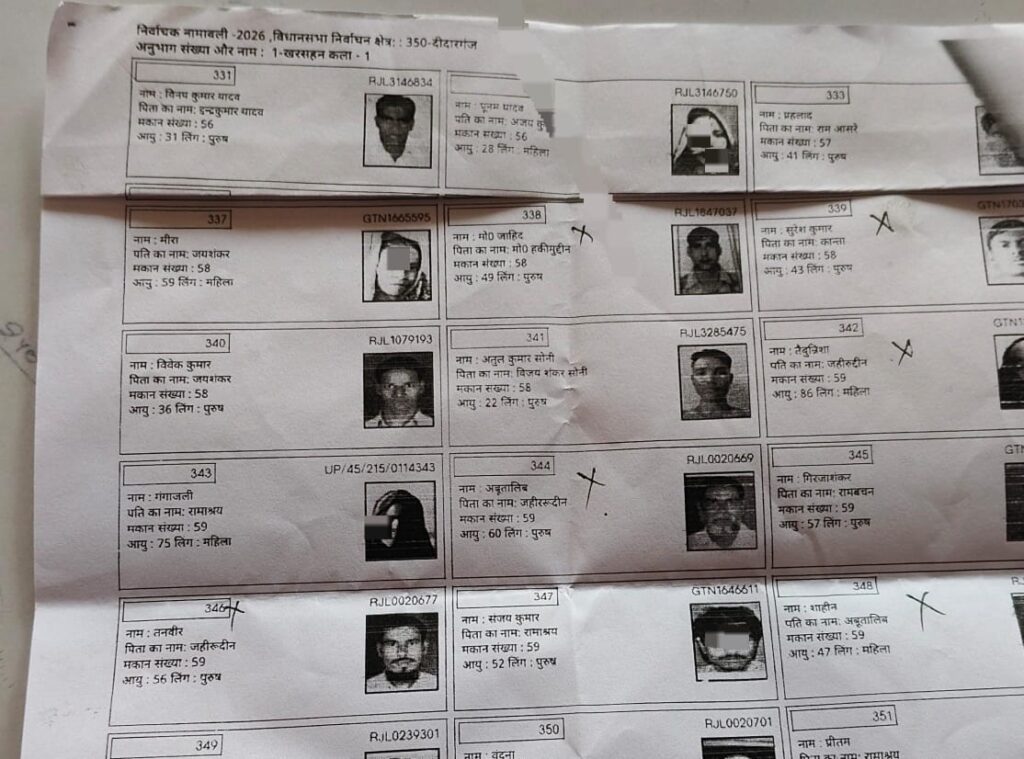 निर्वाचक नामावली -2026 ,विधानसभा निर्वाचन क्षेत्र: : 350-दीदारगंज
अनुभाग संख्या और नाम : 1-खरसहन कला - 1
331
RJL3146834
नाम : विनय कुमार यादव
पिता का नाम: इन्द्रकुमार यादव
मकान संख्या : 56
आयु : 31 लिंग : पुरुष
RJL3146750
नाम : पूनम यादव
पति का नाम: अजय
मकान संख्या : 56
आयु : 28 लिंग : महिला
333
नाम : प्रहलाद
पिता का नाम: राम आसरे
मकान संख्या : 57
आयु : 41 लिंग : पुरुष
337
GTN1665595
नाम : मीरा
पति का नाम: जयशंकर
मकान संख्या : 58
आयु : 59 लिंग : महिला
338
RJL1847037
नाम : मो0 जाहिद
पिता का नाम: मो0 हकीमुद्दीन
मकान संख्या : 58
आयु : 49 लिंग : पुरुष
339
नाम : सुरेश कुमार
पिता का नाम: कान्ता
मकान संख्या : 58
आयु : 43 लिंग : पुरुष
340
RJL1079193
नाम : विवेक कुमार
पिता का नाम: जयशंकर
मकान संख्या : 58
आयु : 36 लिंग : पुरुष
341
RJL3285475
नाम : अतुल कुमार सोनी
पिता का नाम: विजय शंकर सोनी
मकान संख्या : 58
आयु : 22 लिंग : पुरुष
342
नाम : तैदुन्निशा
पति का नाम: जहीरुद्दीन
मकान संख्या : 59
आयु : 86 लिंग : महिला
343
UP/45/215/0114343
नाम : गंगाजली
पति का नाम: रामाश्रय
मकान संख्या : 59
आयु : 75 लिंग : महिला
344
RJL0020669
नाम : अबूतालिब
पिता का नाम: जहीररूदीन
मकान संख्या : 59
आयु : 60 लिंग : पुरुष
345
नाम : गिरजाशंकर
पिता का नाम: रामबचन
मकान संख्या : 59
आयु : 57 लिंग : पुरुष
346
RJL0020677
नाम : तनवीर
पिता का नाम: जहीरूदीन
मकान संख्या : 59
आयु : 56 लिंग : पुरुष
347
GTN1646611
नाम : संजय कुमार
पिता का नाम: रामाश्रय
मकान संख्या : 59
आयु : 52 लिंग : पुरुष
348
नाम : शाहीन
पति का नाम: अबूतालिब
मकान संख्या : 59
आयु : 47 लिंग : महिला
349
RJL0239301
350
RJL0020701
नाम : वंदना
351
नाम : प्रीतम
पिता का नाम: रामाश्रय